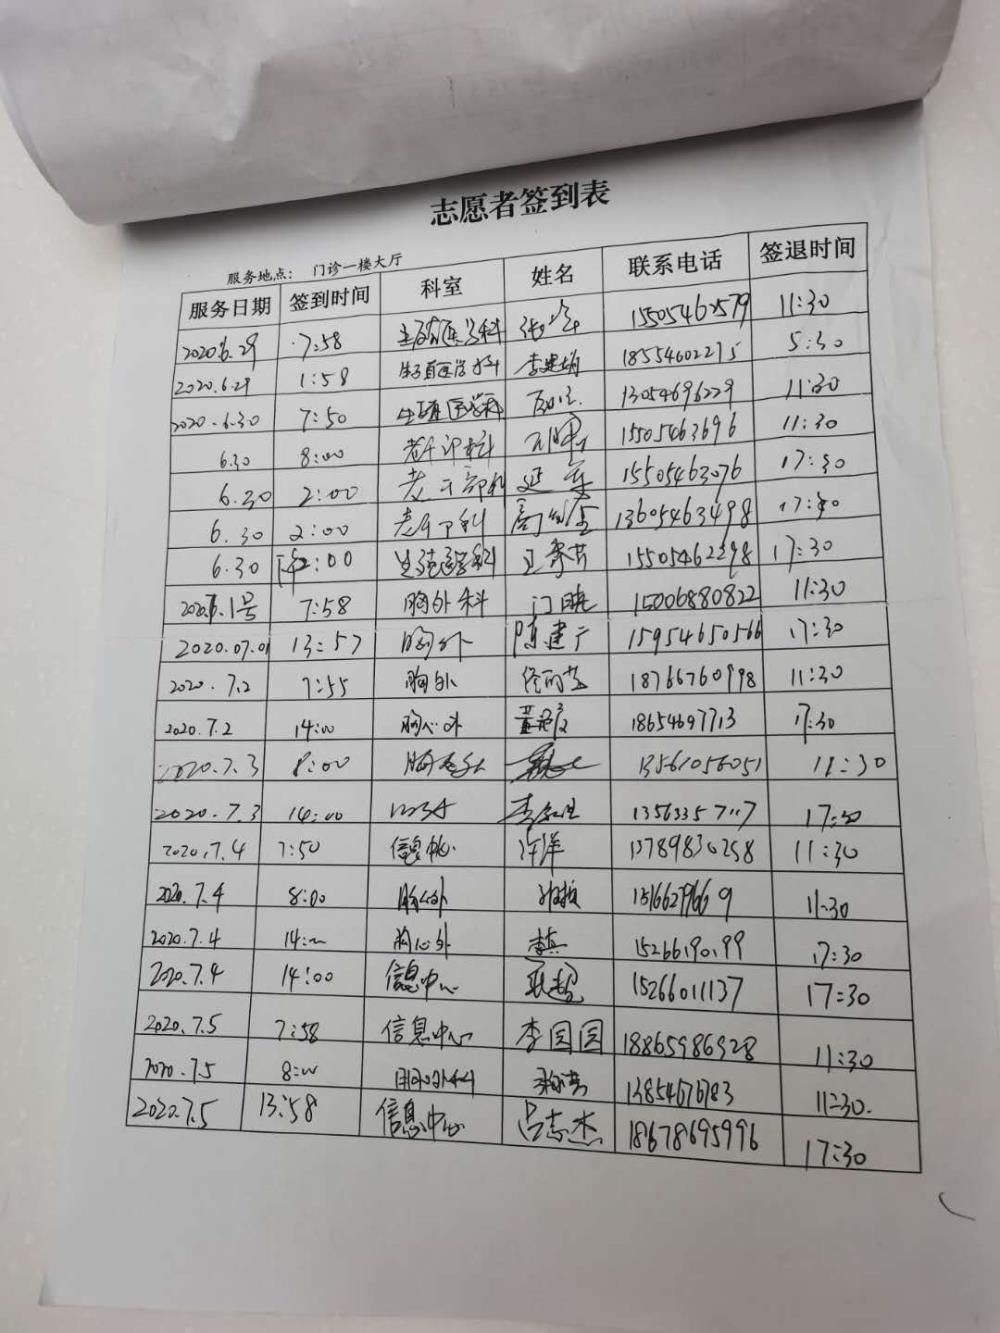 志愿者签到表
服务地点： 门诊一楼大厅
服务日期 签到时间 科室 姓名 联系电话 签退时间
2020.6.29 7:58 生殖医学科 15505462579 11:30
2020.6.29 1:58 生殖医学科 18554602275 5:30
2020.6.30 7:50 生殖医学科 13054696229 11:30
6.30 8:00 15505463696 11:30
6.30 2:00 老干部科 15505463076 17:30
6.30 2:00 13605463498 17:30
6.30 下午2:00 生殖医学科 王秀芹 15505462298 17:30
2020.7.1号 7:58 胸外科 门晓 15006880822 11:30
2020.07.01 13:57 胸外 陈建广 15954650566 17:30
2020.7.2 7:55 胸外 18766760998 11:30
2020.7.2 14:00 胸心外 18654697713 17:30
2020.7.3 8:00 13561056051 11:30
2020.7.3 14:00 17:30
2020.7.4 7:50 信息中心 许洋 13789830258 11:30
2020.7.4 8:00 胸心外 11:30
2020.7.4 14:00 胸心外 李真 15266190199 17:30
2020.7.4 14:00 信息中心 耿超 15266011137 17:30
2020.7.5 7:58 信息中心 李园园 18865986928 11:30
2020.7.5 8:00 11:30.
2020.7.5 13:58 信息中心 吕志杰 18678695996 17:30